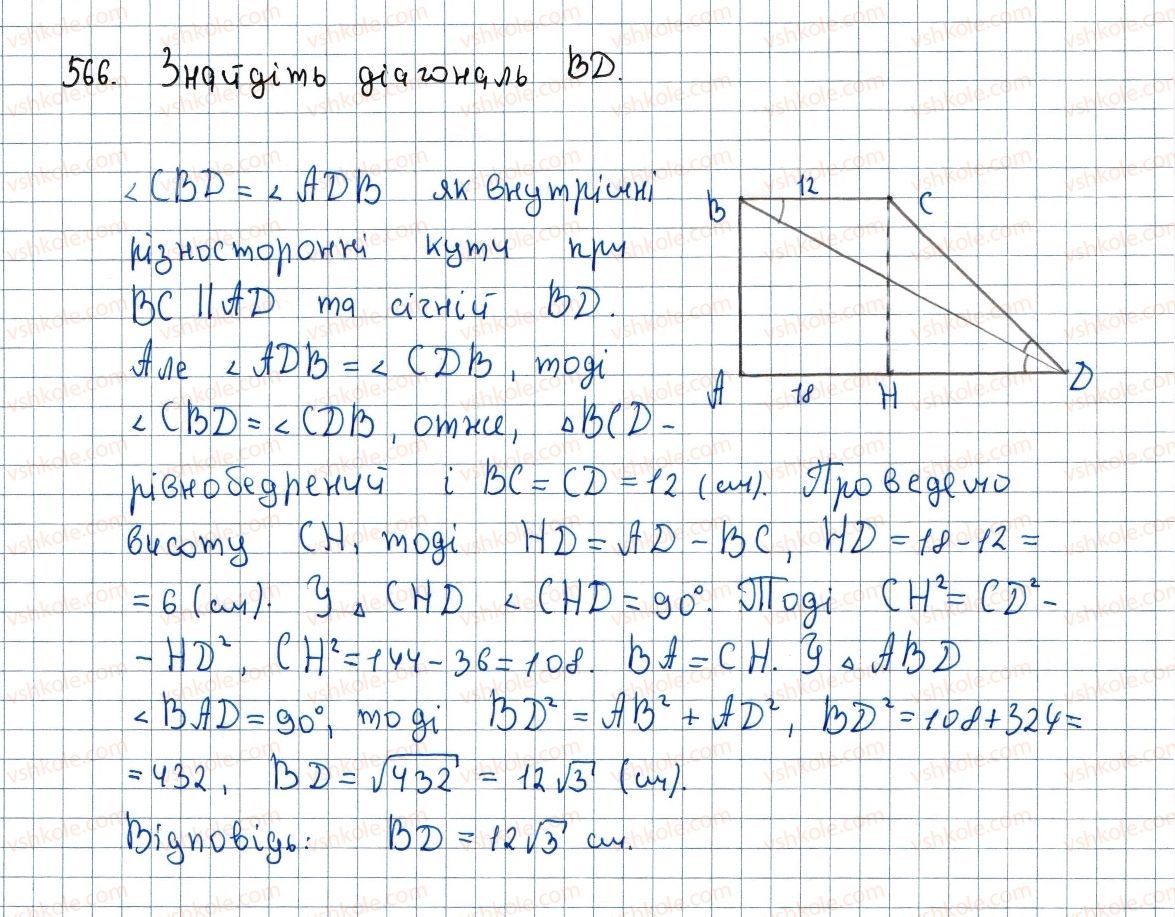 566. Знайдіть діагональ BD.
∠CBD = ∠ADB як внутрішні
різносторонні кути при
BC || AD та січній BD.
Але ∠ADB = ∠CDB, тоді
∠CBD = ∠CDB, отже, △BCD –
рівнобедрений і BC = CD = 12 (см). Проведемо
висоту CH, тоді HD = AD – BC, HD = 18 – 12 =
= 6 (см). У △CHD ∠CHD = 90°. Тоді CH² = CD² –
– HD², CH² = 144 – 36 = 108. BA = CH. У △ABD
∠BAD = 90°, тоді BD² = AB² + AD², BD² = 108 + 324 =
= 432, BD = √432 = 12√3 (см).
Відповідь: BD = 12√3 см.
B 12 C
A 18 H D
vshkole.com